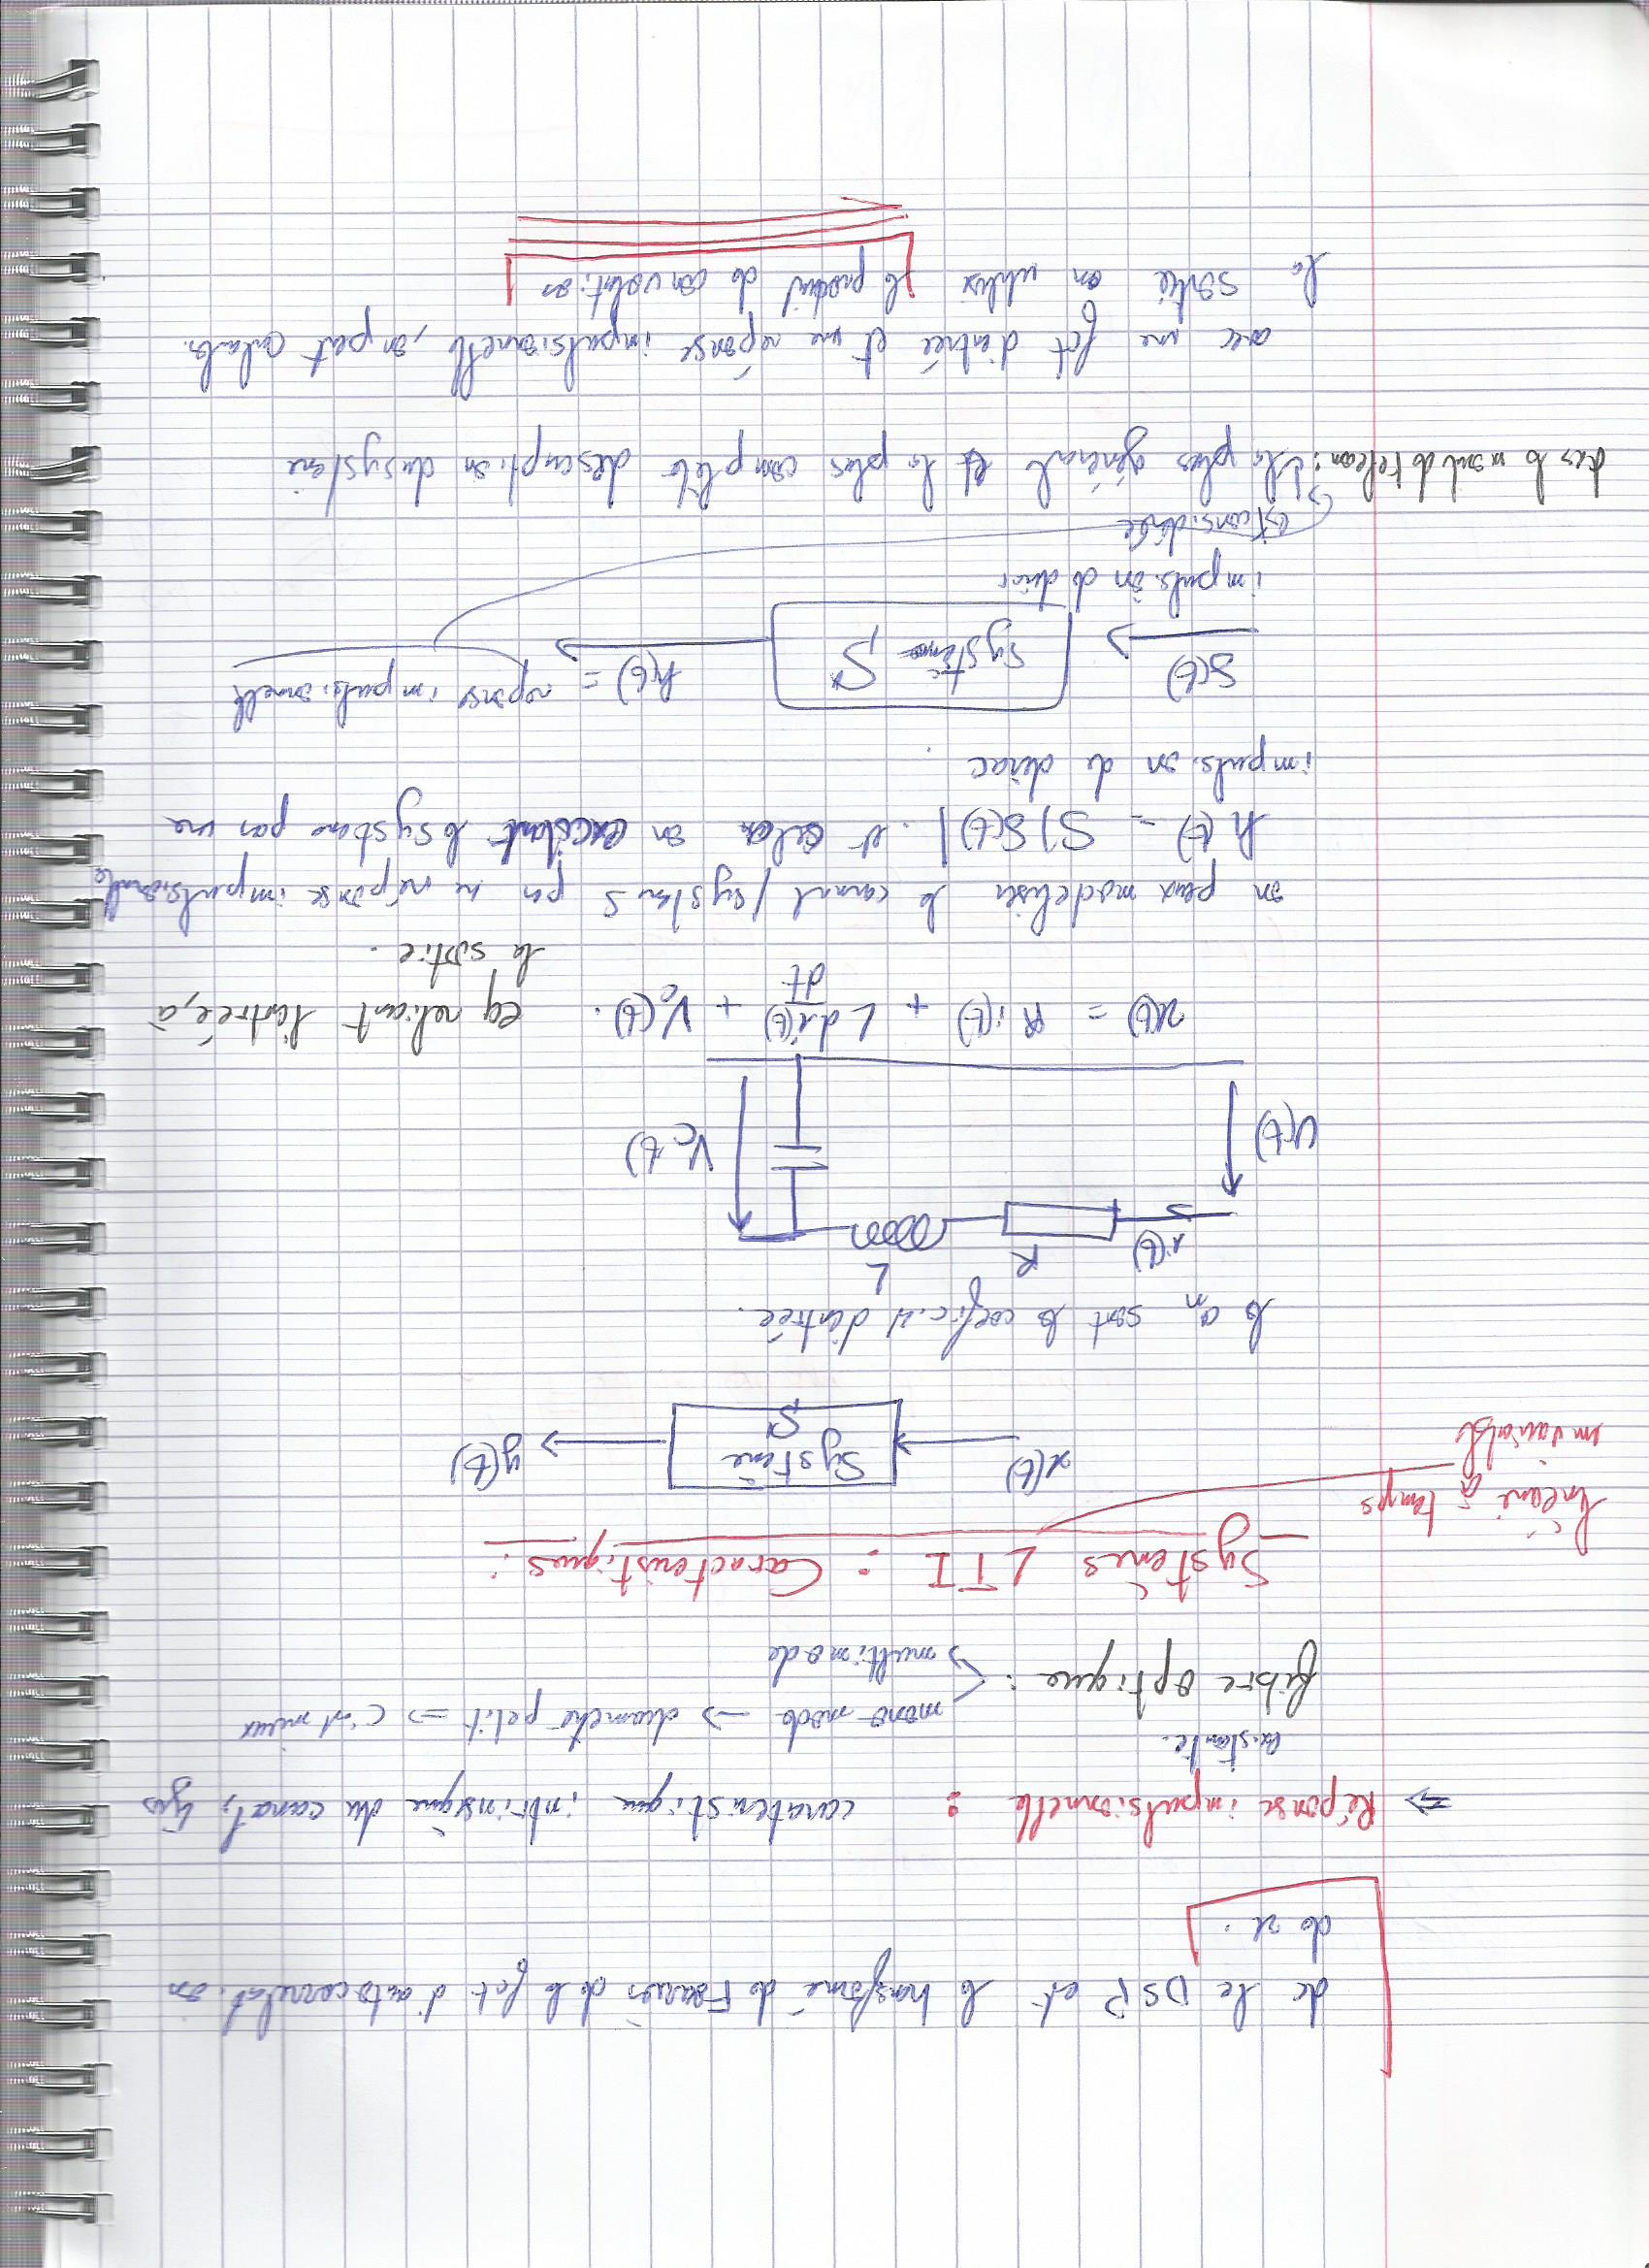 de le DSP et la transformé de Fourier de la fct d'autocorrelation
de x.
⇒ Réponse impulsionnelle : caracteristique intrinsèque du canal,
existante.
fibre optique :
mono mode → diametre petit ⇒ c'est mieux
→ multimode
Systèmes LTI : Caracteristiques :
linéaire à temps
invariable
x(t) Système S y(t)
le an sont le coefici d'entrée.
L
i(t) R
U(t) Vc(t)
x(t) = R i(t) + L di(t)/dt + Vc(t). eq reliant l'entrée, à
la sortie.
on peux modeliser le canal / systeme S par une réponse impulsionnelle
h(t) = S|δ(t)|. et cela en excitant le systeme par une
impulsion de dirac.
δ(t) Système S h(t) = reponse impulsionnelle
impulsion de dirac
est considérée
dans le monde de telecom : la plus général et la plus complète description du systeme
avec une fct d'entrée et une réponse impulsionnelle, on peut calculer
la sortie on utilise le produit de convolution